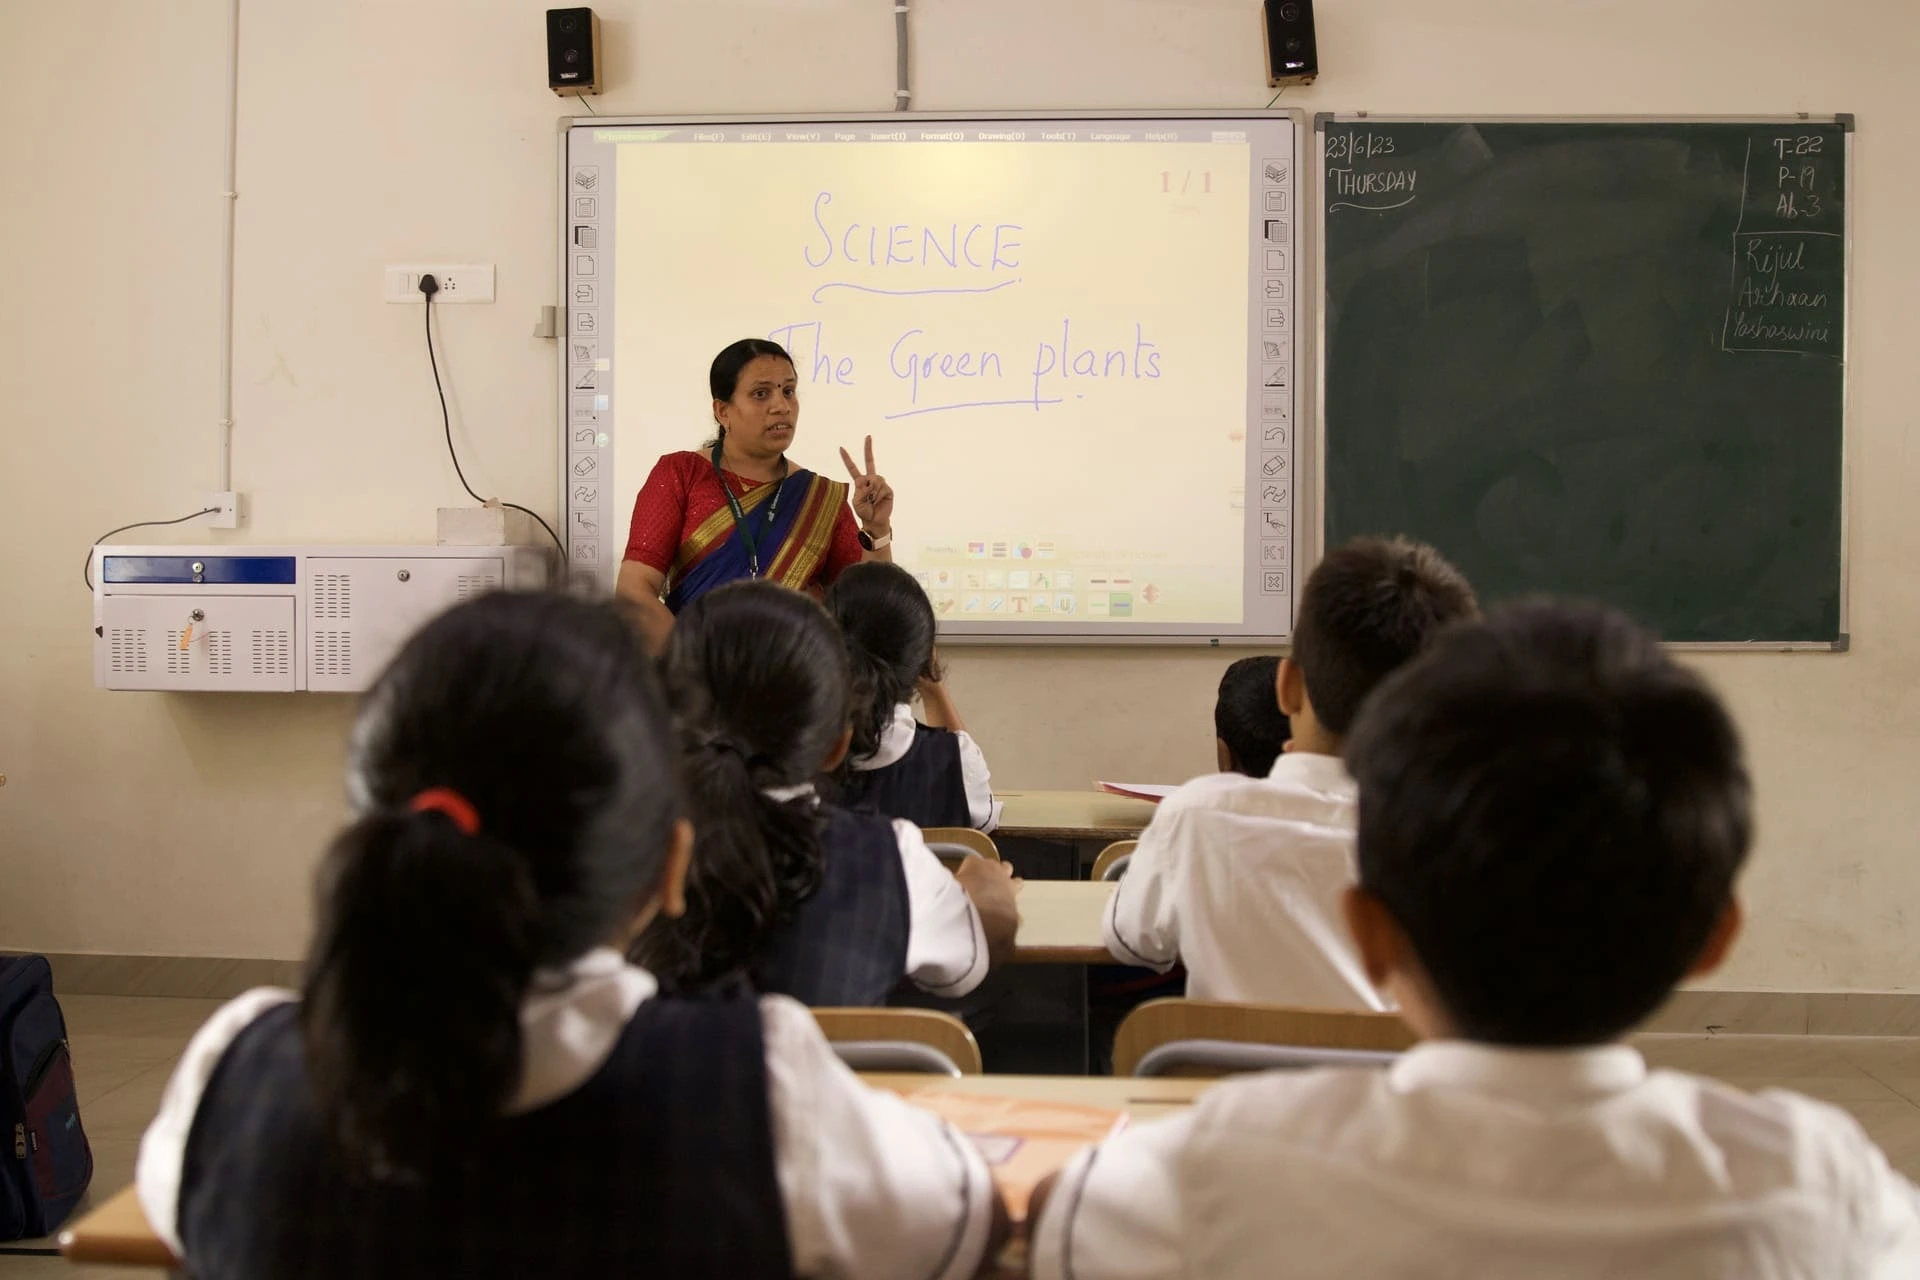 Files(F) Edit(E) View(V) Page Insert(I) Format(O) Drawing(D) Tools(T) Language Help(H)
1/1
SCIENCE
The Green plants
T
K1
T
K1
T
23/6/23
THURSDAY
T-22
P-19
Ab-3
Rijul
Arhaan
Yashaswini